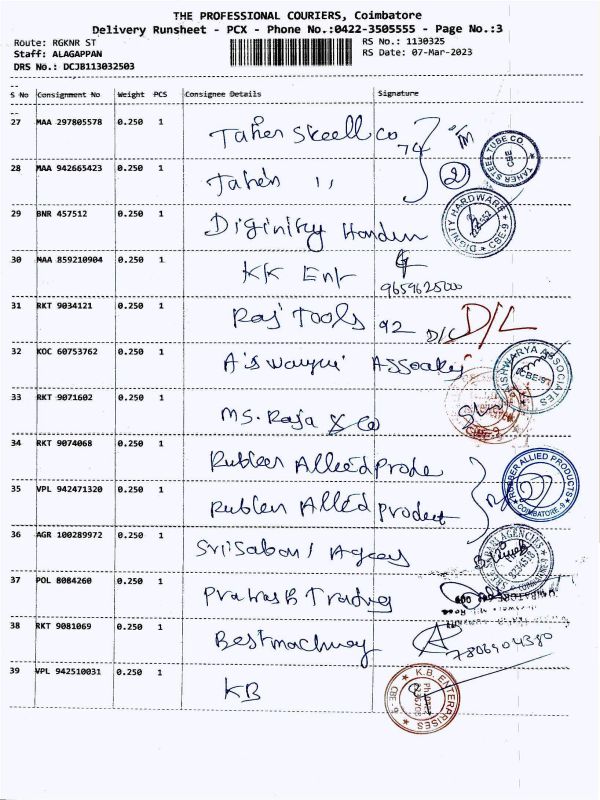 THE PROFESSIONAL COURIERS, Coimbatore
Delivery Runsheet - PCX - Phone No.:0422-3505555 - Page No.:3
Route: RGKNR ST
RS No.: 1130325
Staff: ALAGAPPAN
RS Date: 07-Mar-2023
DRS No.: DCJB113032503
S No Consignment No Weight PCS Consignee Details Signature
27 MAA 297805578 0.250 1 Taher Steell Co 74
TAHER STEEL TUBE CO. CBE
28 MAA 942665423 0.250 1 Taher 11 2
29 BNR 457512 0.250 1 Diginity Harden
DIGNITY HARDWARE CBE-9
30 MAA 859210904 0.250 1 KK Ent
9659625000
31 RKT 9034121 0.250 1 Raj Tools 92 D/L D/L
32 KOC 60753762 0.250 1 Aiswarya Assoatej
AISHWARYA ASSOCIATES CBE-9
33 RKT 9071602 0.250 1 MS. Raja & Co
34 RKT 9074068 0.250 1 Rubber Allied Prode
RUBBER ALLIED PRODUCTS COIMBATORE-9
35 VPL 942471320 0.250 1 Rubber Allied product
36 AGR 100289972 0.250 1 Sri Sabari Agency
37 POL 8084260 0.250 1 Prakash Trading
38 RKT 9081069 0.250 1 Bestmachinery
7806904380
39 VPL 942510031 0.250 1 KB
K.B. ENTERPRISES